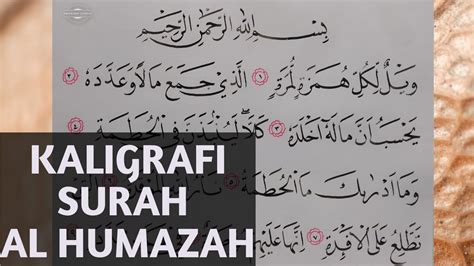 بِسْمِ اللهِ الرَّحْمٰنِ الرَّحِيْمِ
وَيْلٌ لِكُلِّ هُمَزَةٍ لُمَزَةٍ ١ الَّذِيْ جَمَعَ مَالًا وَعَدَّدَهُ ٢
يَحْسَبُ اَنَّ مَالَهُ اَخْلَدَهُ ٣ كَلَّا لَيُنْبَذَنَّ فِي الْحُطَمَةِ ٤
وَمَا اَدْرٰىكَ مَا الْحُطَمَةُ ٥ نَارُ
تَطَّلِعُ عَلَى الْاَفْئِدَةِ ٧ اِنَّهَا عَلَيْهِمْ
KALIGRAFI
SURAH
AL HUMAZAH